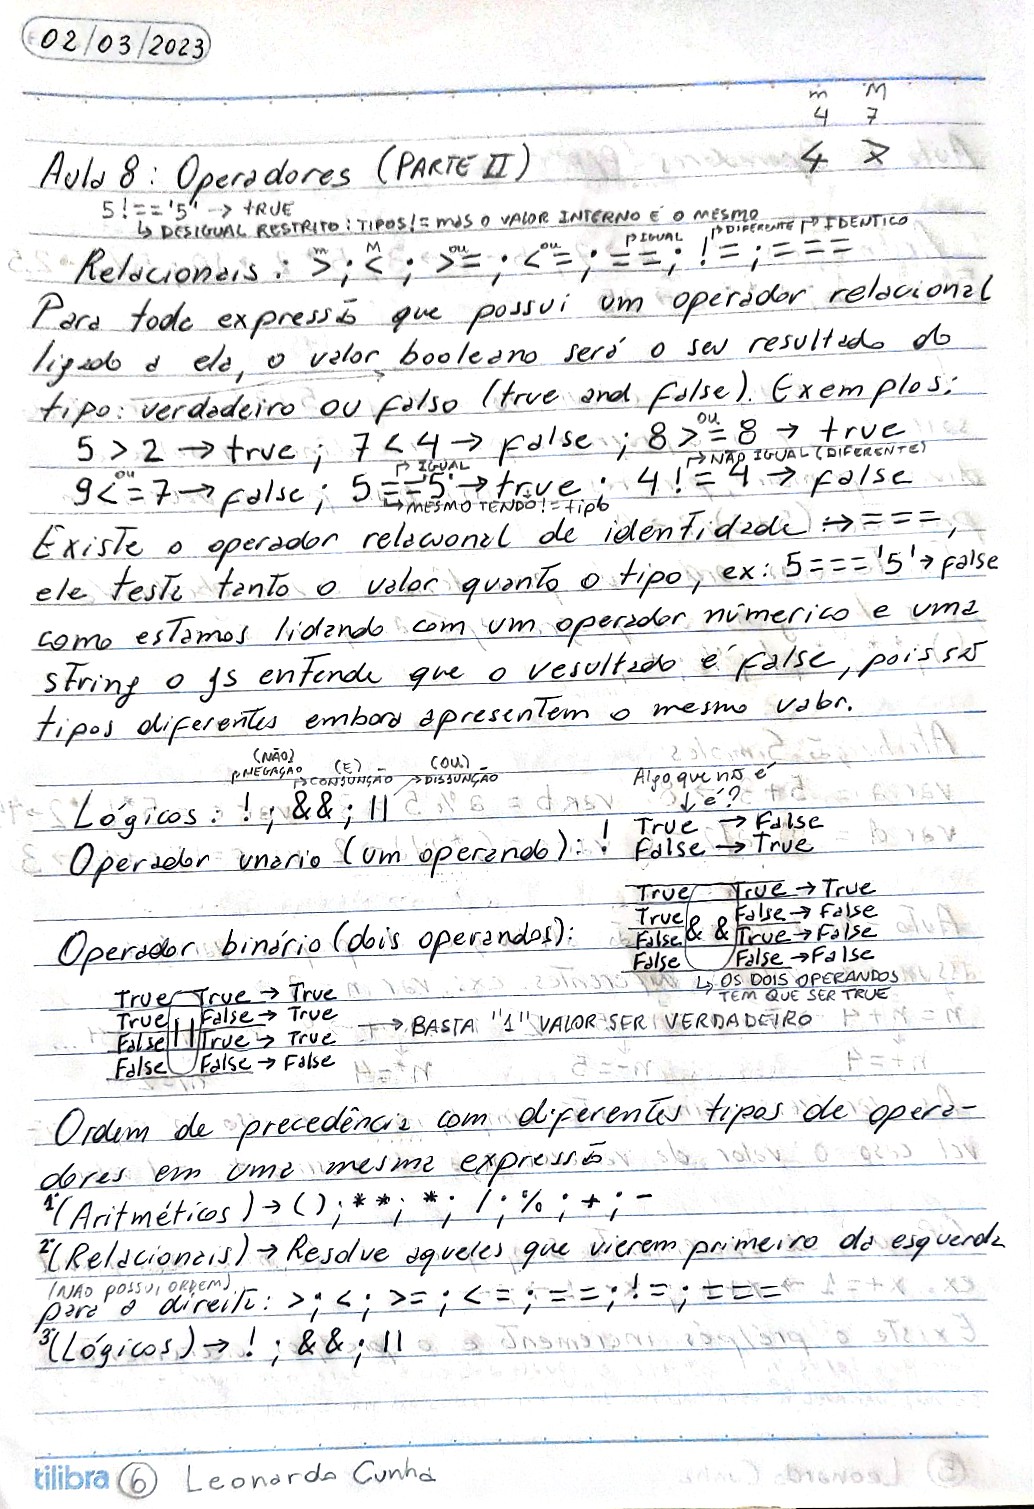 02/03/2023
m M
4 7
4 7
Aula 8: Operadores (PARTE II)
5!=='5' -> tRUE
↳ DESIGUAL RESTRITO: TIPOS != mas O VALOR INTERNO E O MESMO
m M ou ou ↱IGUAL ↱DIFERENTE ↱IDENTICO
Relacionais: >; <; >=; <=; ==; !=; ===
Para toda expressão que possui um operador relacional
ligado a ela, o valor booleano será o seu resultado do
tipo: verdadeiro ou falso (true and false). Exemplos:
5 > 2 → true; 7 < 4 → false; 8 >= 8 → true
ou
ou ↱IGUAL ↱NÃO IGUAL (DIFERENTE)
9 <= 7 → false; 5 == '5' → true; 4 != 4 → false
↳MESMO TENDO != tipo
Existe o operador relacional de identidade → ===,
ele testa tanto o valor quanto o tipo, ex: 5==='5'→ false
como estamos lidando com um operador númerico e uma
string o js entende que o resultado é false, pois são
tipos diferentes embora apresentem o mesmo valor.
(NÃO) (E) (OU)
↱NEGAÇÃO ↱CONJUNÇÃO ↗DISJUNÇÃO
Algo que não é
↓ é?
Lógicos: !; &&; ||
Operador unario (um operando): !
True → False
False → True
Operador binário (dois operandos): &&
True True → True
True False → False
False True → False
False False → False
↳ OS DOIS OPERANDOS
TEM QUE SER TRUE
||
True True → True
True False → True
False True → True
False False → False
→ BASTA "1" VALOR SER VERDADEIRO
Ordem de precedência com diferentes tipos de opera-
dores em uma mesma expressão
1º(Aritméticos) → (); **; *; /; %; +; -
2º(Relacionais) → Resolve aqueles que vierem primeiro da esquerda
(NÃO POSSUI ORDEM)
para a direita: >; <; >=; <=; ==; !=; ===
3º(Lógicos) → !; &&; ||
tilibra 6 Leonardo Cunha